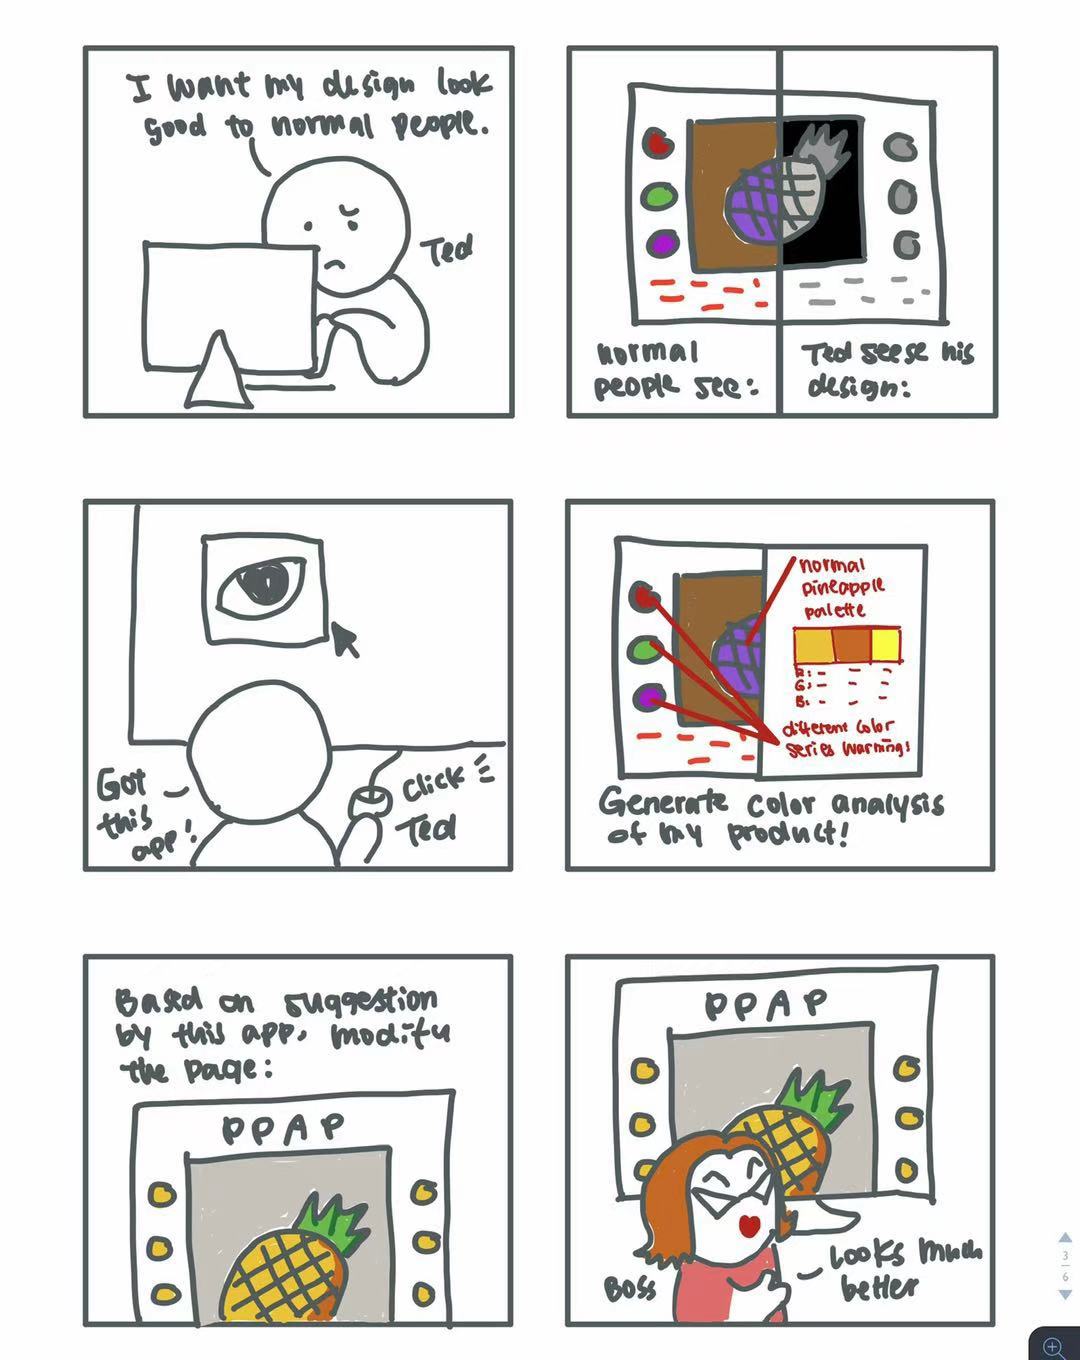 I want my design look
good to normal people.
Ted
normal
people see:
Ted seese his
design:
Got
this
app!
Click
Ted
normal
pineapple
palette
R:
G:
B:
different color
series warning!
Generate color analysis
of my product!
Based on suggestion
by this app, modify
the page:
PPAP
PPAP
Boss
Looks much
better
3
6